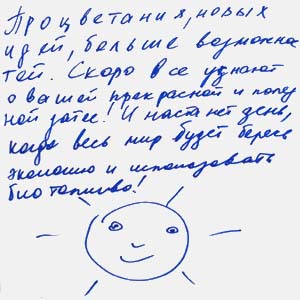 Процветания, новых
идей, больше возможнос
тей. Скоро все узнают
о вашей прекрасной и полез
ной затее! И настанет день,
когда весь мир будет беречь
экологию и использовать
биотопливо!